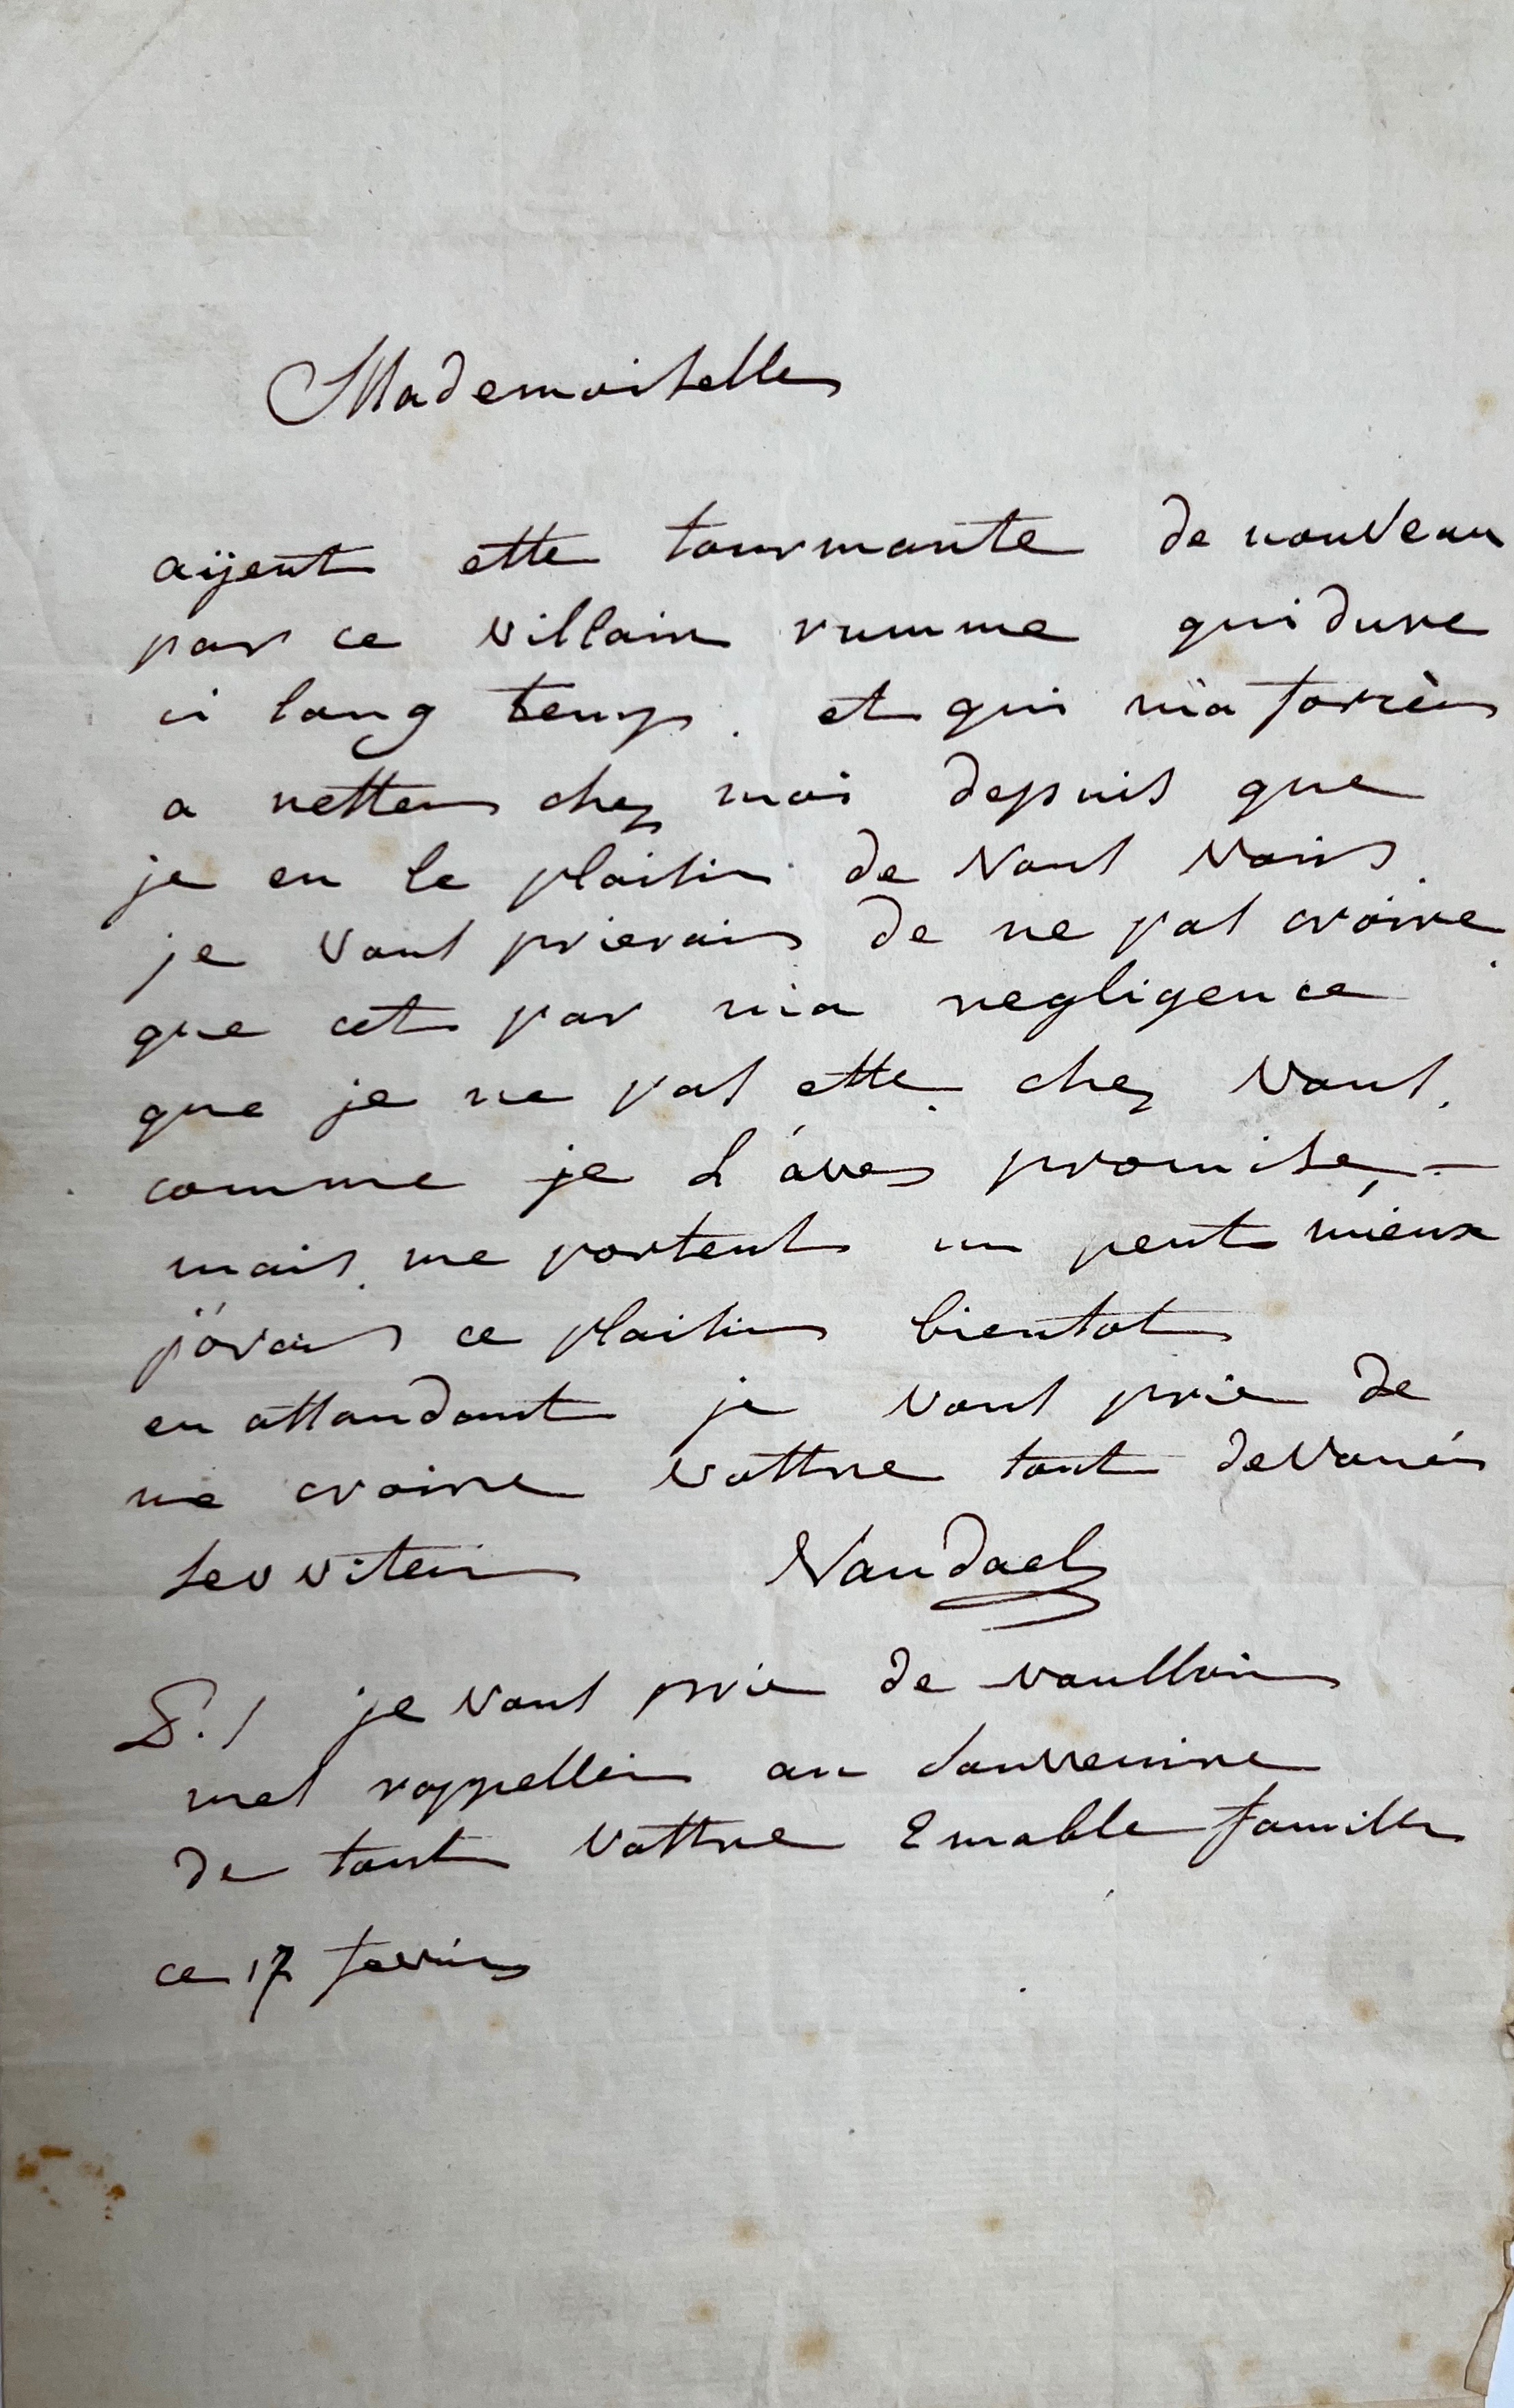 Mademoiselle
aijent ette tourmante de nouveau
par ce villain rumme qui dure
ci long temps. et qui m'a forcè
a retter chez moi depuis que
je eu le plaisir de vous voir.
je vous prierais de ne pas croire
que cet par ma negligence
que je ne pas ette chez vous.
comme je L'avez promise,-
mais me portent un peut mieux
j'orai ce plaisir bientot
en attandant je vous prie de
me croire vottre tout devoué
serviteur Vandael
P.S je vous prie de voulloir
mes rappeller au souvenire
de tout vottre Emable famille
ce 17 fevrier